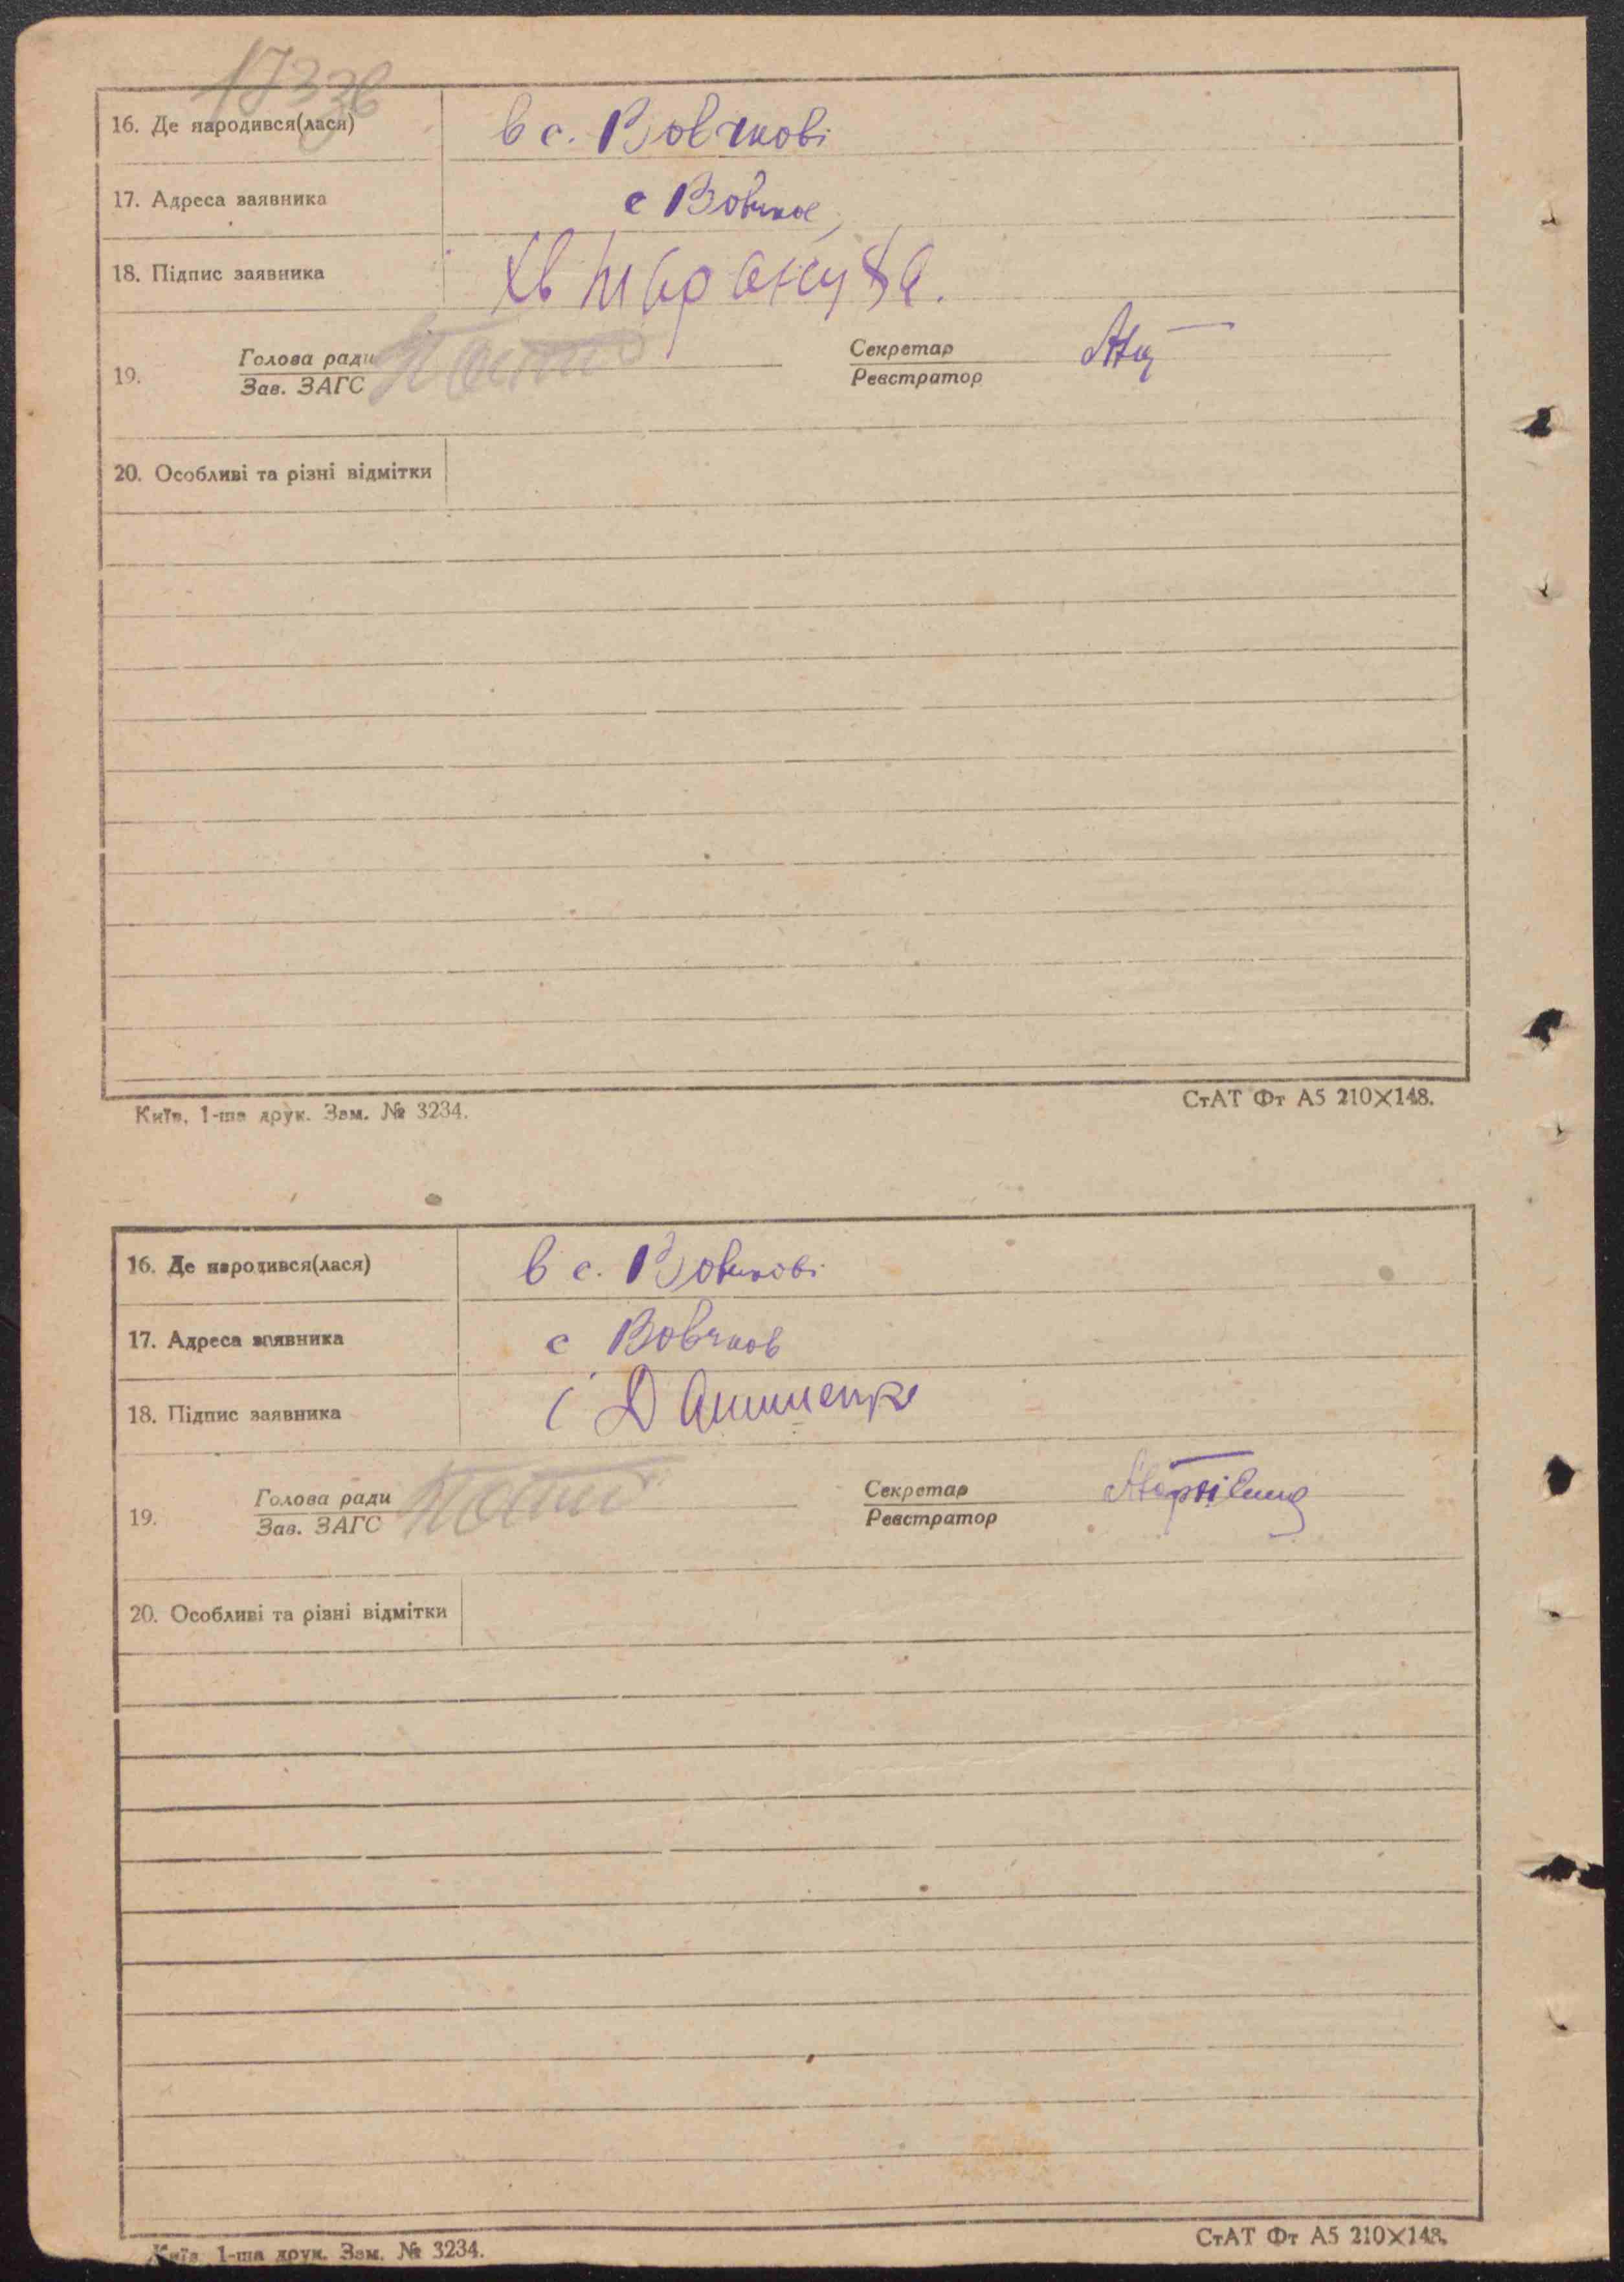 16. Де народився(лася) в с. Вовчкові
17. Адреса заявника с Вовчков
18. Підпис заявника
19. Голова ради Секретар
Зав. ЗАГС Реєстратор
20. Особливі та різні відмітки
Київ, 1-ша друк. Зам. № 3234. СтАТ Фт А5 210×148.
16. Де народився(лася) в с. Вовчкові
17. Адреса заявника с Вовчков
18. Підпис заявника
19. Голова ради Секретар
Зав. ЗАГС Реєстратор
20. Особливі та різні відмітки
Київ, 1-ша друк. Зам. № 3234. СтАТ Фт А5 210×148.